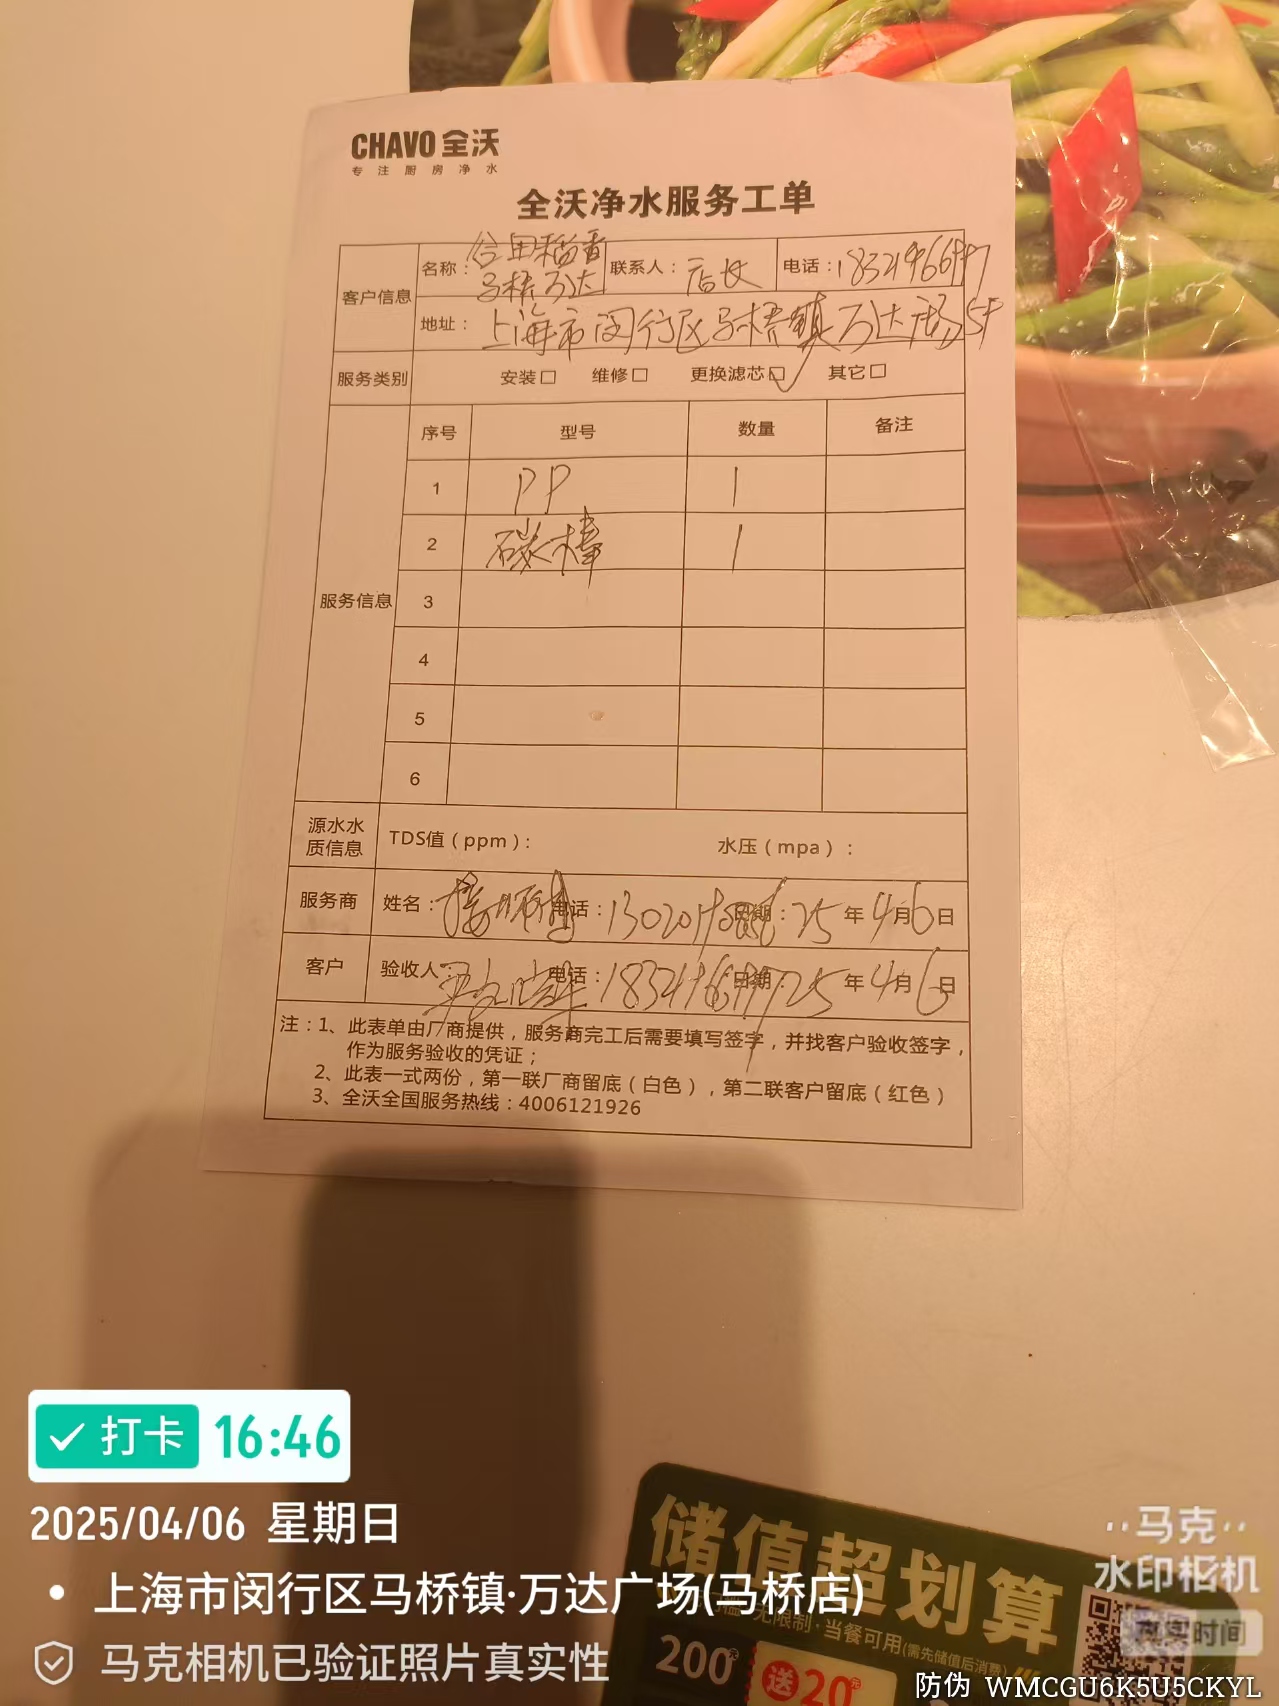 CHAVO 全沃
专注厨房净水
全沃净水服务工单
客户信息
名称：
稻香
马桥万达
联系人：店长
电话：
地址：上海市闵行区马桥镇万达广场5F
服务类别
安装□ 维修□ 更换滤芯☑ 其它□
服务信息
序号 型号 数量 备注
1 PP 1
2 碳棒 1
3
4
5
6
源水水质信息
TDS值（ppm）： 水压（mpa）：
服务商 姓名： 电话： 日期：25年4月6日
客户 验收人： 电话： 日期：25年4月6日
注：1、此表单由厂商提供，服务商完工后需要填写签字，并找客户验收签字，
作为服务验收的凭证；
2、此表一式两份，第一联厂商留底（白色），第二联客户留底（红色）
3、全沃全国服务热线：4006121926
打卡 16:46
2025/04/06 星期日
上海市闵行区马桥镇·万达广场(马桥店)
马克相机已验证照片真实性
储值超划算
无限制·当餐可用(需先储值后消费)
200元 送20元
马克
水印相机
真实时间
防伪 WMCGU6K5U5CKYL